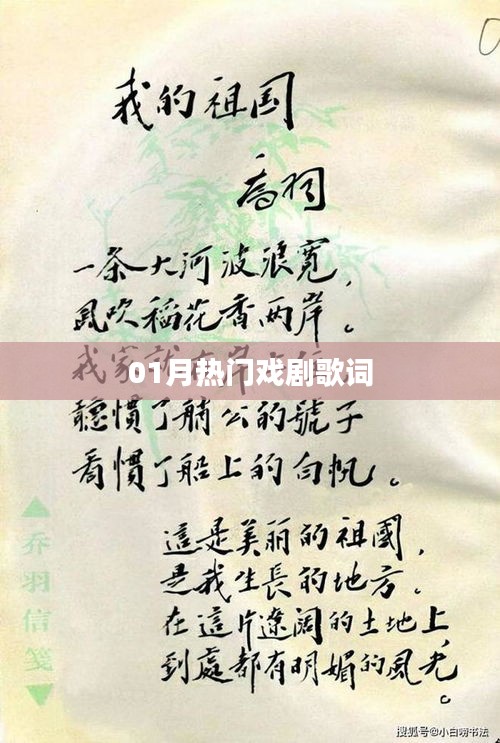 我的祖国
喬羽
一条大河波浪寬，
風吹稻花香两岸。
我家就在岸上住
01月热门戏剧歌词
聽慣了艄公的號子
看慣了船上的白帆。
這是美丽的祖國，
是我生長的地方。
在這片遼阔的土地上，
到處都有明媚的風光。
乔羽信笺
搜狐号@小白唠书法